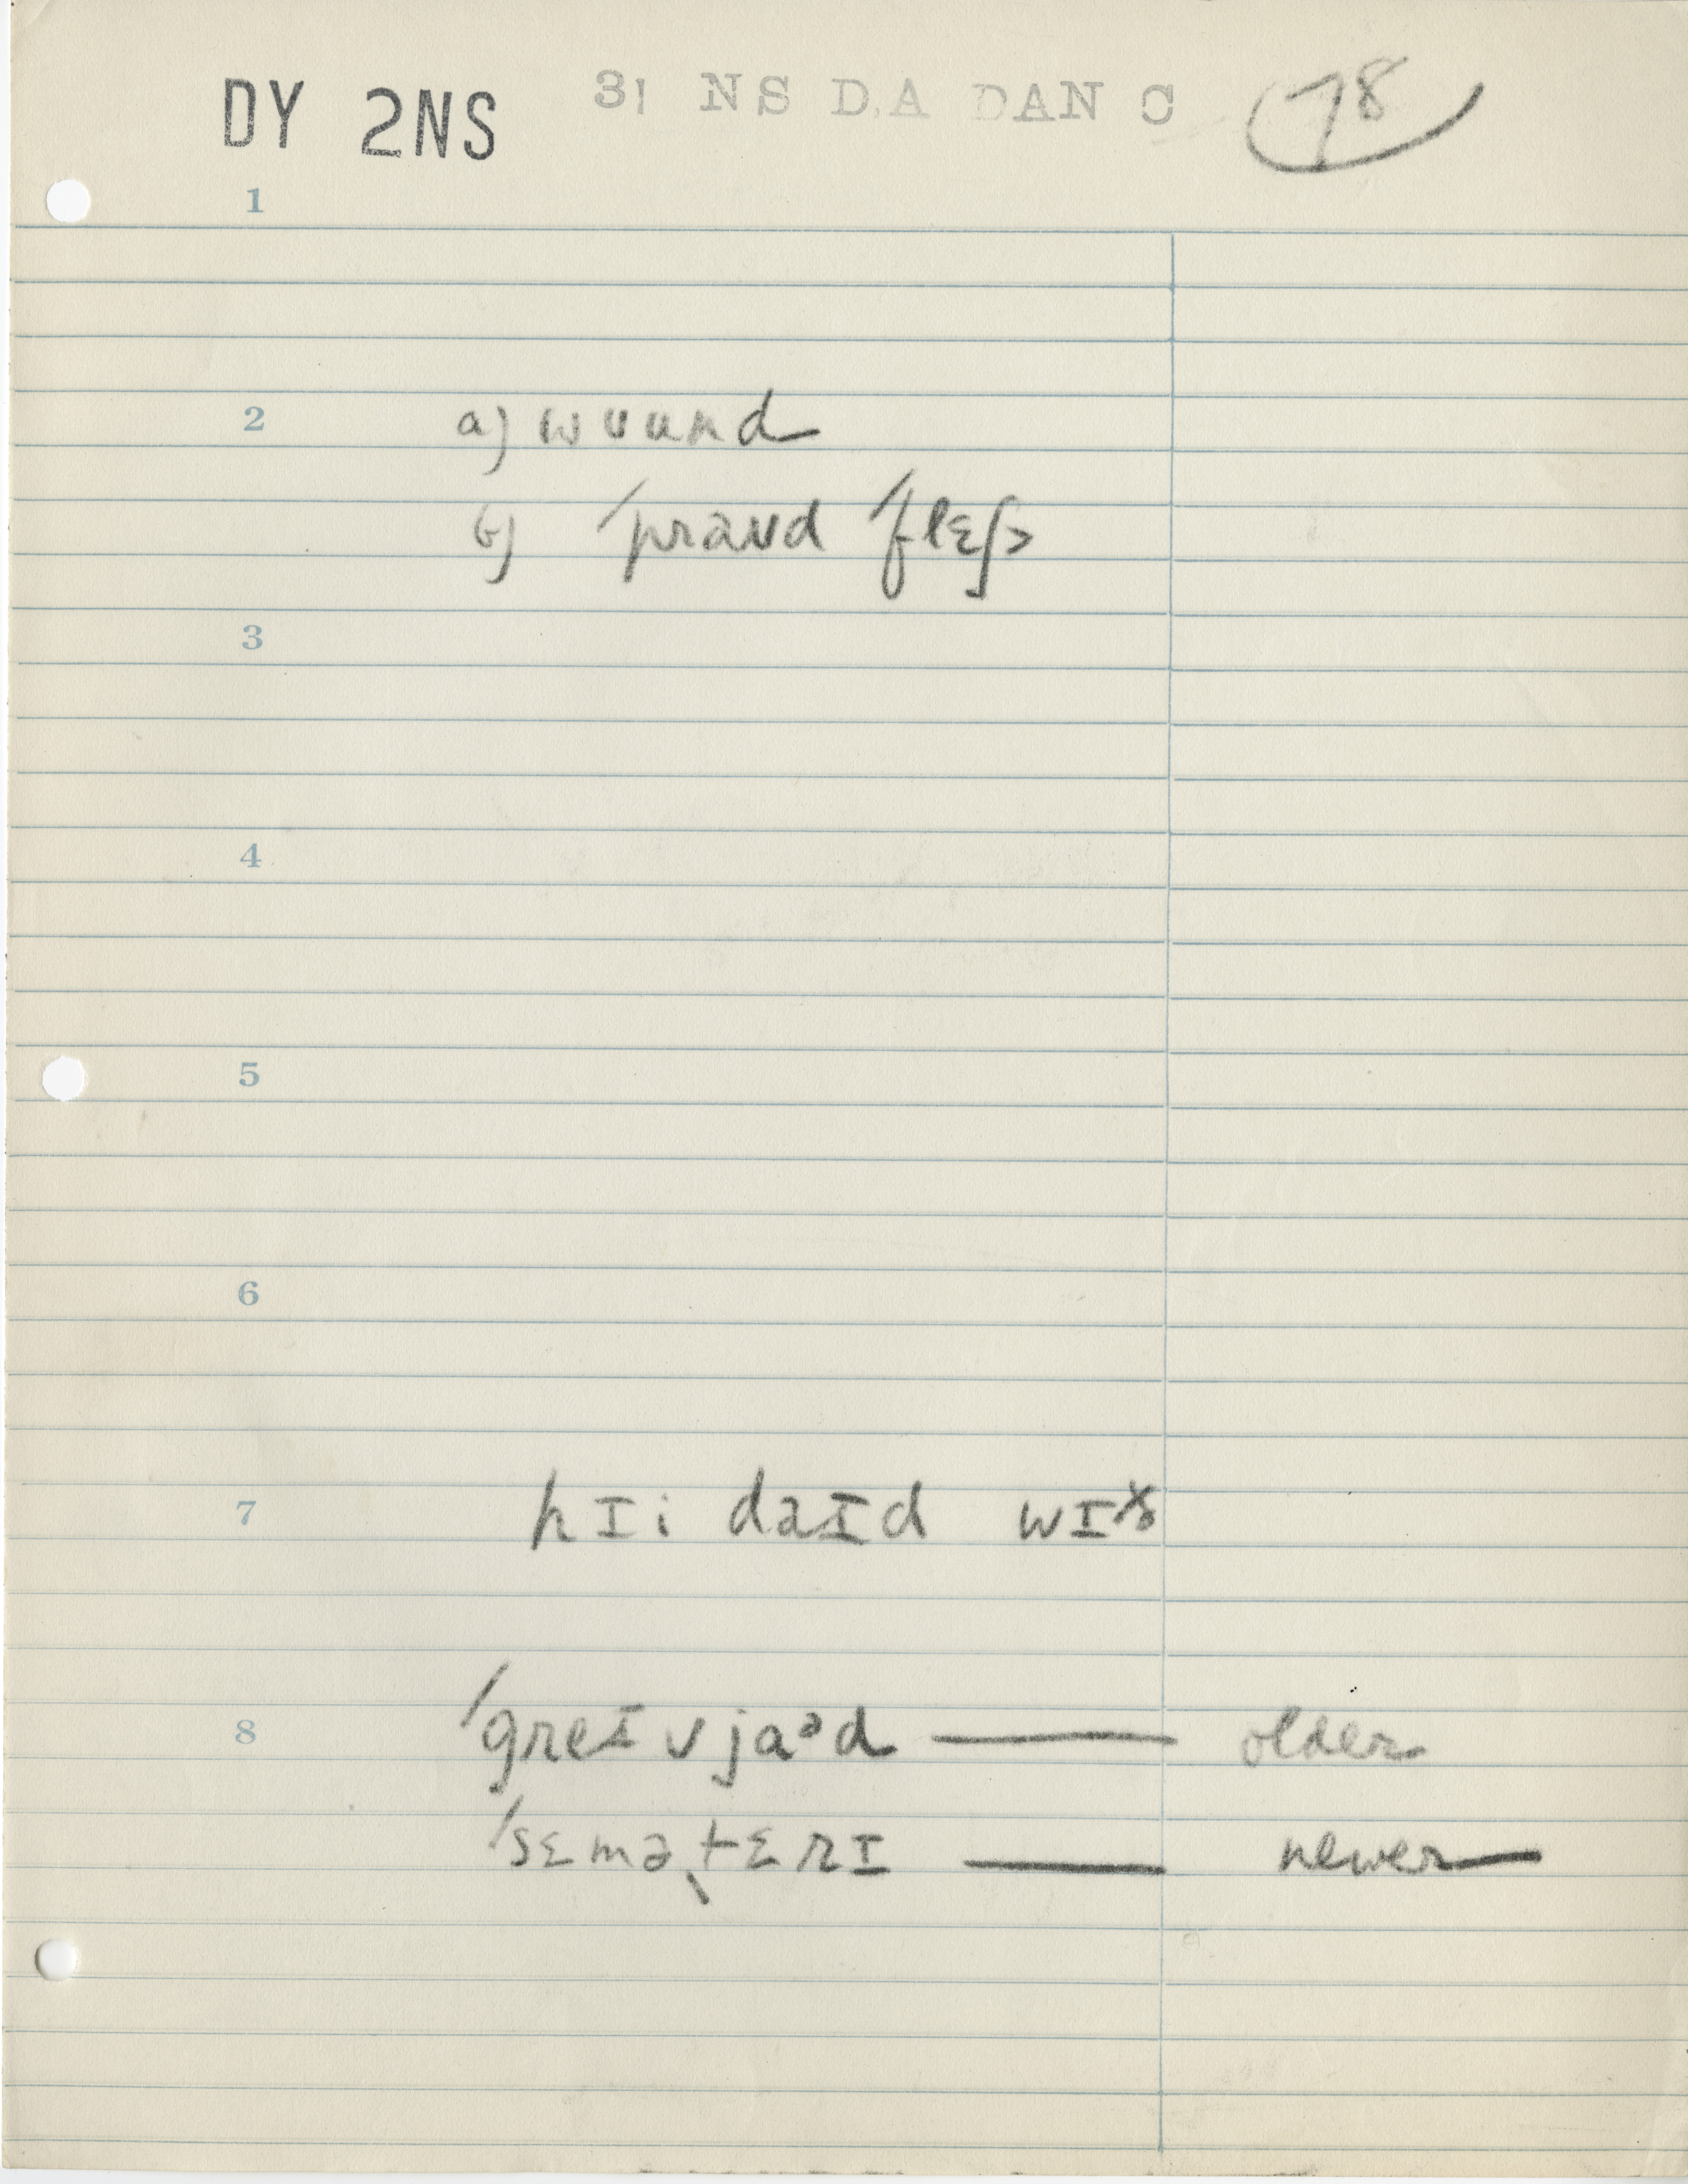 DY 2NS 31 NS DA DAN C 78
1
2 a) wʊund
b) ˈpraʊd ˈflɛʃ
3
4
5
6
7 hɪi daɪd wɪð
8 ˈgreɪvjaᵊd — older
ˈsɛməˌtɛrɪ — newer